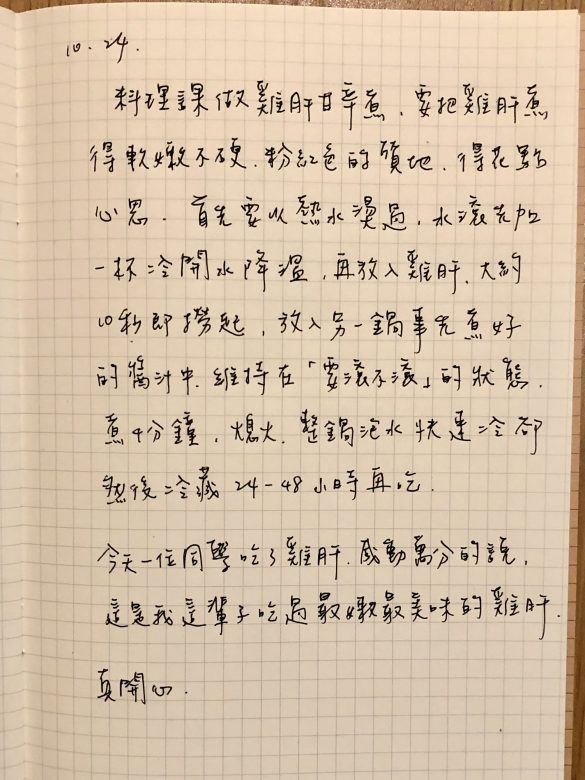 10.24.
料理課做雞肝甘辛煮，要把雞肝煮
得軟嫩不硬.粉紅色的質地.得花點
心思．首先要以熱水燙過，水滾先加
一杯冷開水降溫，再放入雞肝.大約
10秒即撈起，放入另一鍋事先煮好
的醬汁中.維持在「要滾不滾」的狀態.
煮4分鐘，熄火.整鍋泡水快速冷卻
然後冷藏24-48小時再吃.
今天一位同學吃了雞肝.感動萬分的說，
這是我這輩子吃過最嫩最美味的雞肝.
真開心.